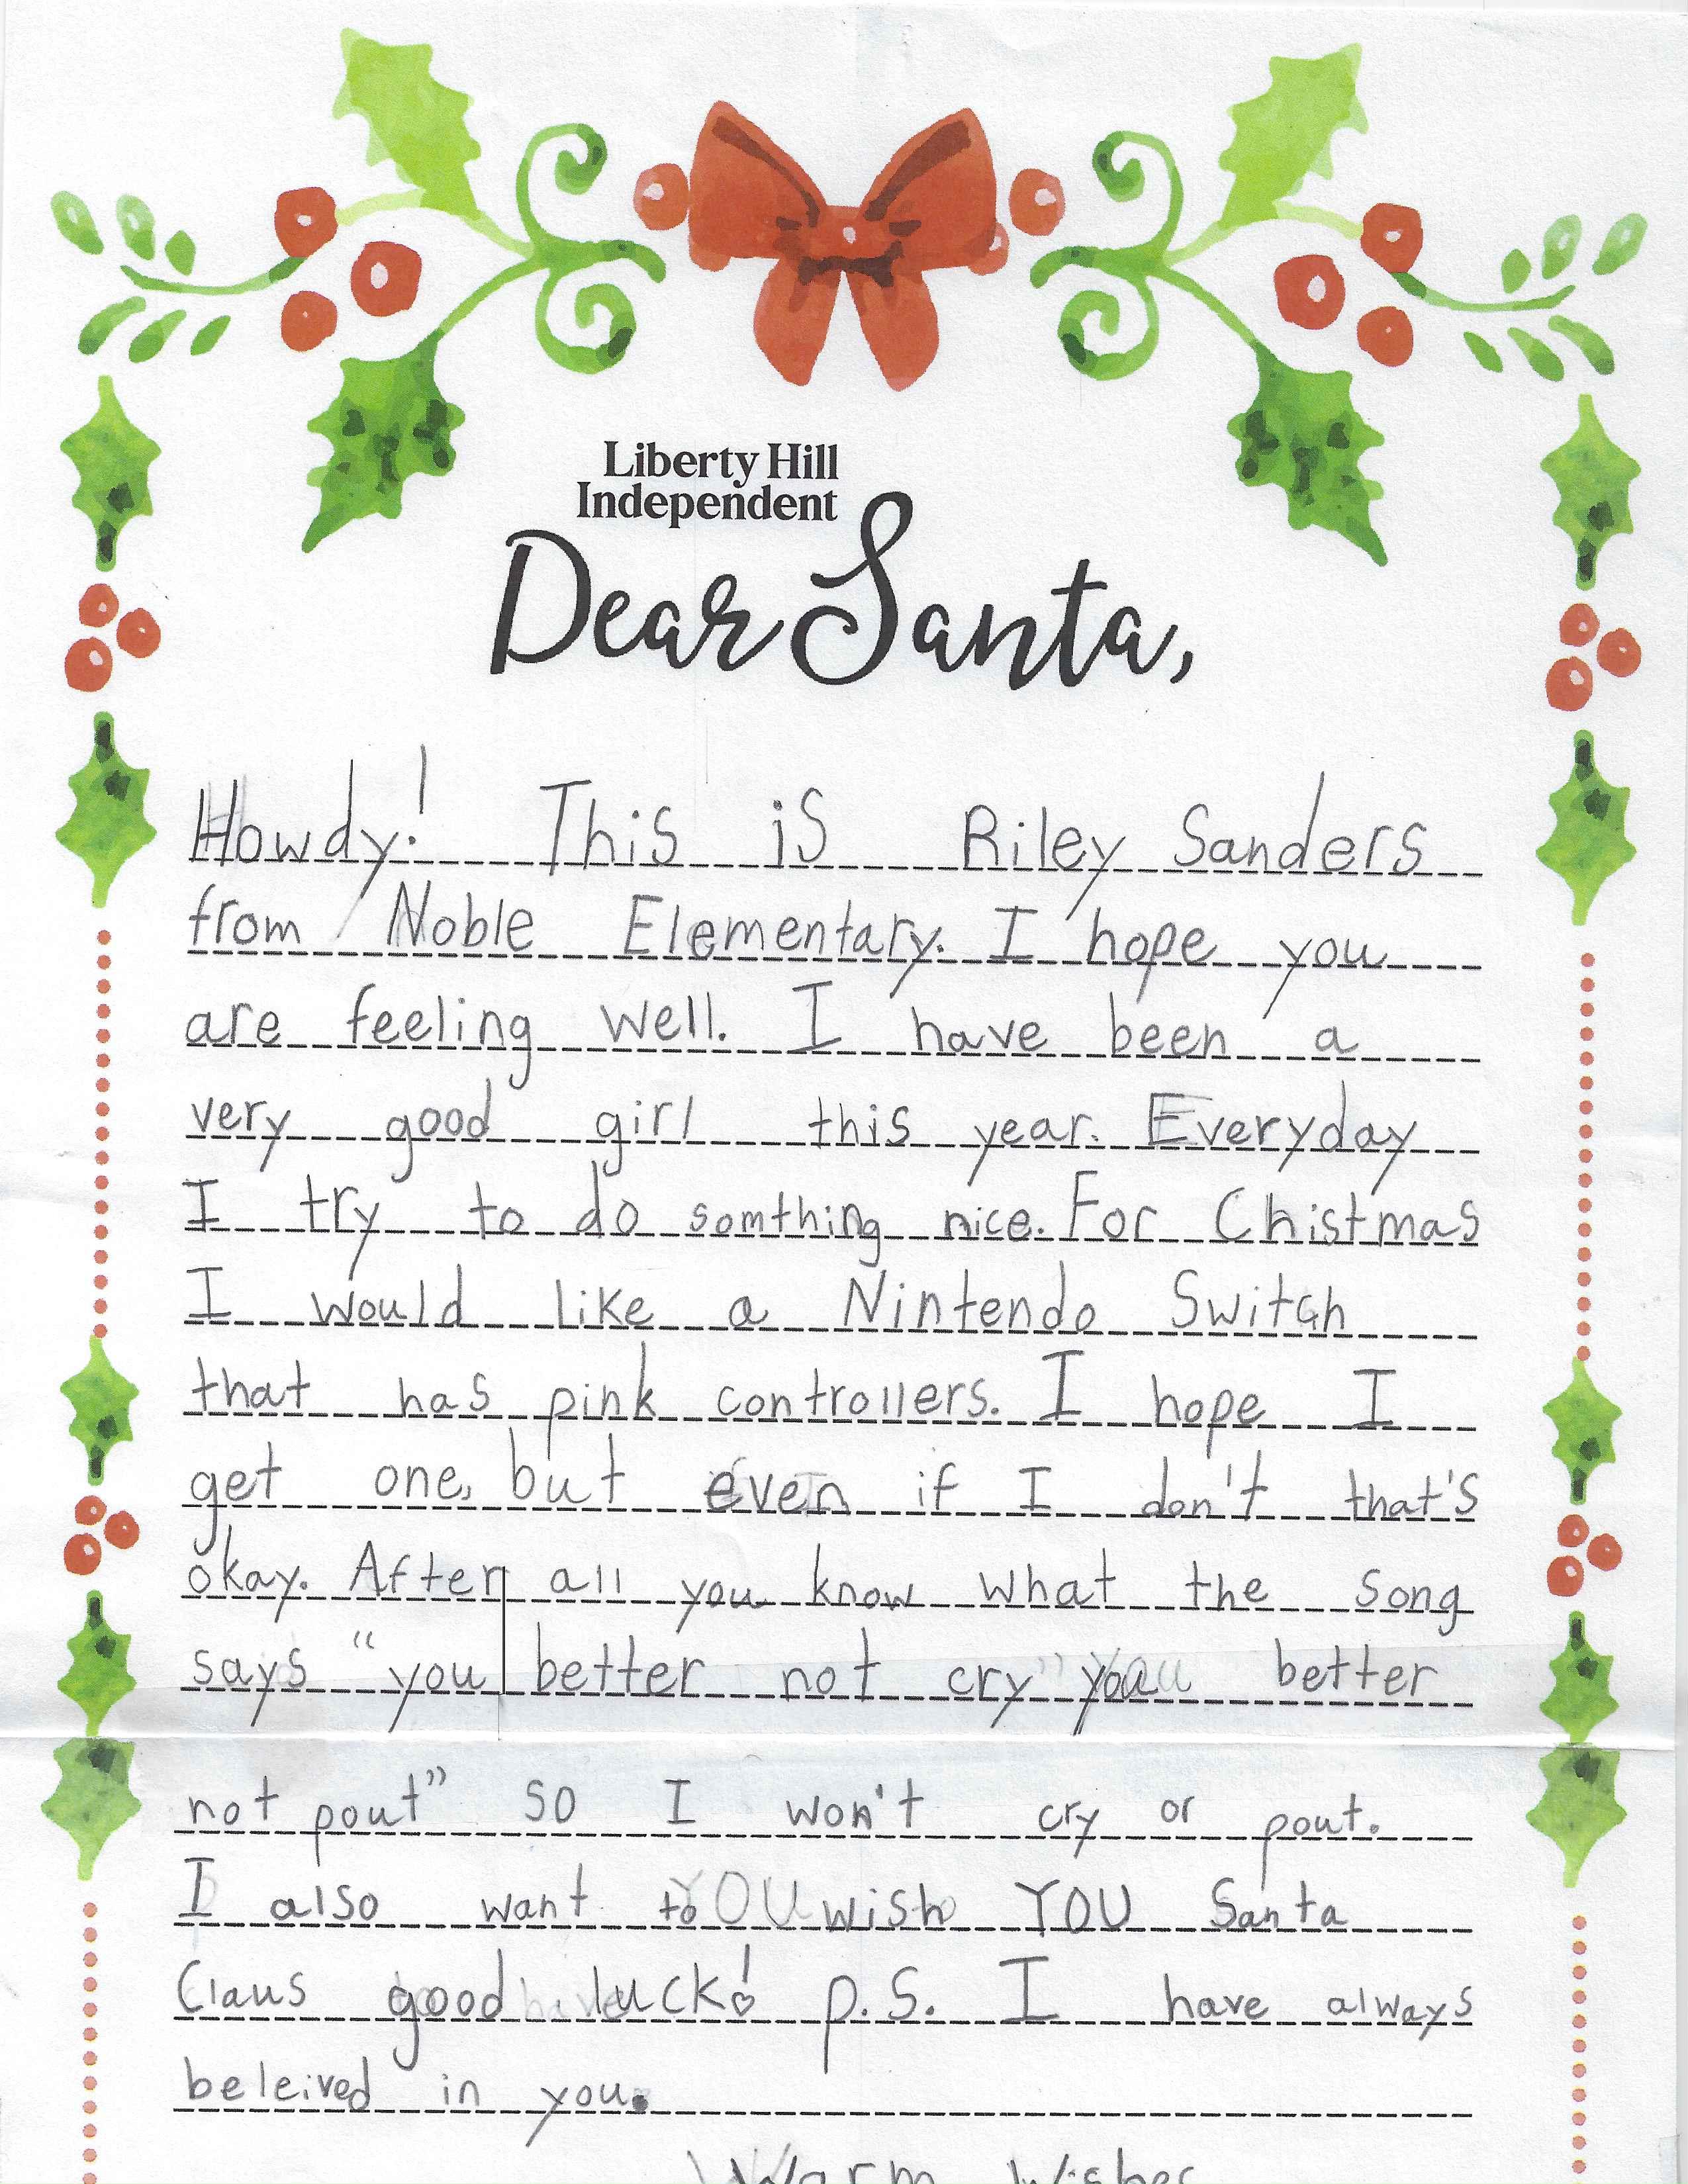 Liberty Hill
Independent
Dear Santa,
Howdy! This is Riley Sanders
from Noble Elementary. I hope you
are feeling well. I have been a
very good girl this year. Everyday
I try to do somthing nice. For Chistmas
I would like a Nintendo Switch
that has pink controllers. I hope I
get one, but even if I don't that's
okay. After all you know what the song
says "you better not cry" you better
not pout" so I won't cry or pout.
I also want to wish YOU Santa
Claus good luck! p.S. I have always
beleived in you.
Warm Wishes